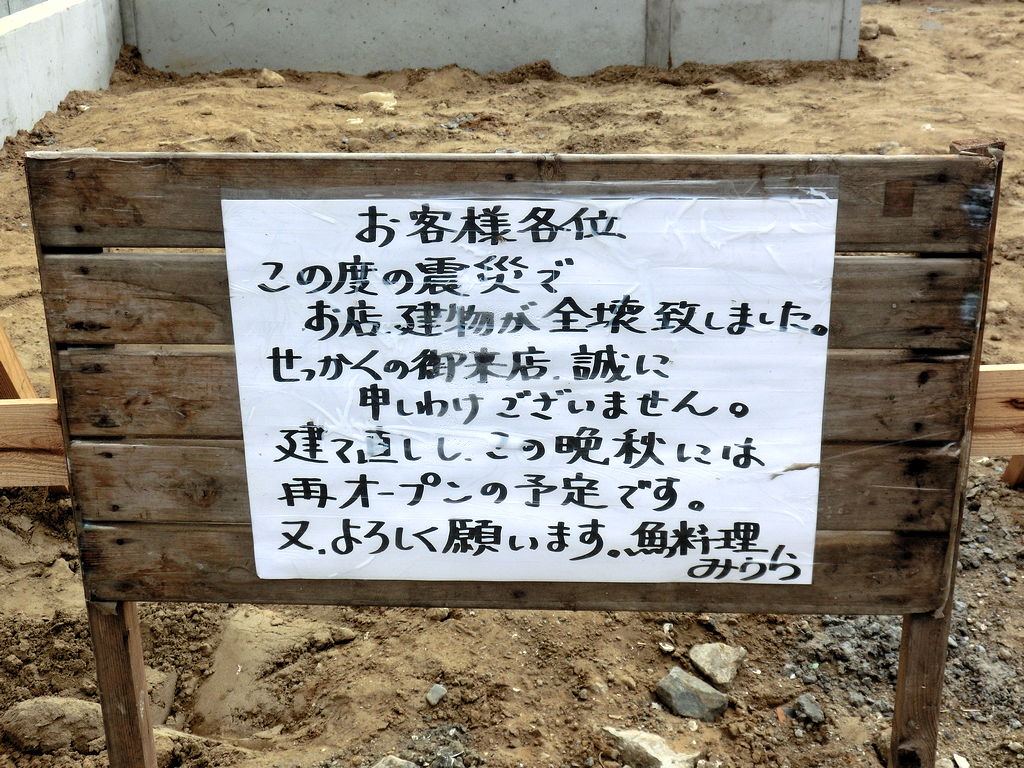 お客様各位
この度の震災で
お店、建物が全壊致しました。
せっかくの御来店、誠に
申しわけございません。
建て直しし、この晩秋には
再オープンの予定です。
又、よろしく願います。魚料理
みうら